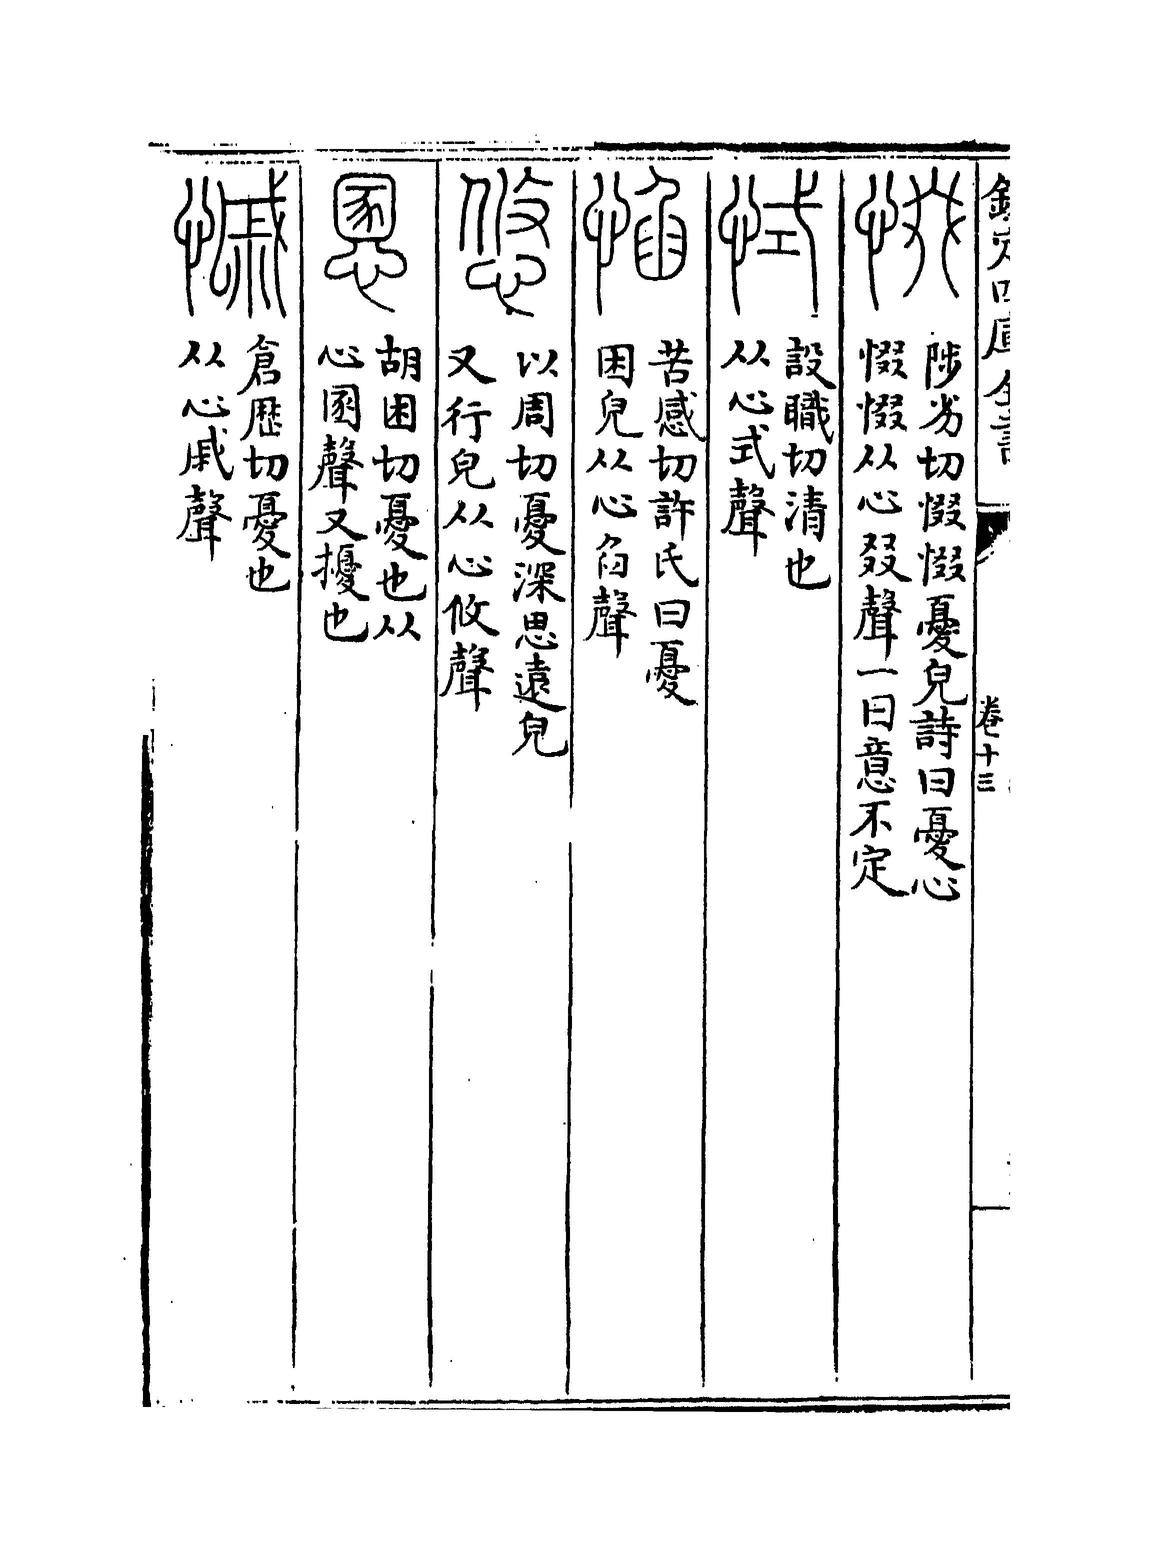 欽定四庫全書
卷十三
惙
陟劣切惙惙憂皃詩曰憂心
惙惙从心叕聲一曰意不定
恜
設職切清也
从心式聲
惂
苦感切許氏曰憂
困皃从心臽聲
悠
以周切憂深思遠皃
又行皃从心攸聲
慁
胡困切憂也从
心圂聲又擾也
慽
倉歴切憂也
从心戚聲